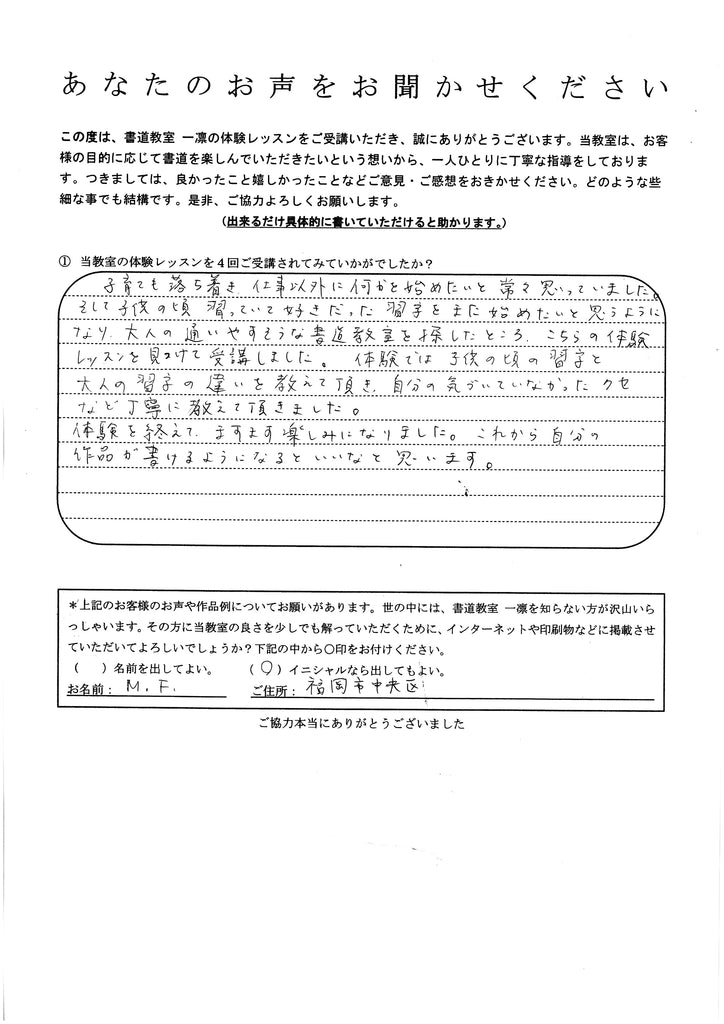 あなたのお声をお聞かせください
この度は、書道教室 一凛の体験レッスンをご受講いただき、誠にありがとうございます。当教室は、お客
様の目的に応じて書道を楽しんでいただきたいという想いから、一人ひとりに丁寧な指導をしておりま
す。つきましては、良かったこと嬉しかったことなどご意見・ご感想をおきかせください。どのような些
細な事でも結構です。是非、ご協力よろしくお願いします。
(出来るだけ具体的に書いていただけると助かります。)
① 当教室の体験レッスンを4回ご受講されてみていかがでしたか?
子育ても落ち着き、仕事以外に何かを始めたいと常々思っていました。
そして子供の頃 習っていて好きだった 習字をまた始めたいと思うように
なり、大人の通いやすそうな書道教室を探したところ、こちらの体験
レッスンを見つけて受講しました。 体験では子供の頃の習字と
大人の習字の違いを教えて頂き、自分の気づいていなかったクセ
など丁寧に教えて頂きました。
体験を終えて、ますます楽しみになりました。これから自分の
作品が書けるようになるといいなと思います。
*上記のお客様のお声や作品例についてお願いがあります。世の中には、書道教室 一凛を知らない方が沢山いら
っしゃいます。その方に当教室の良さを少しでも解っていただくために、インターネットや印刷物などに掲載させ
ていただいてよろしいでしょうか?下記の中から〇印をお付けください。
( )名前を出してよい。 (○)イニシャルなら出してもよい。
お名前: M.F. ご住所: 福岡市中央区
ご協力本当にありがとうございました